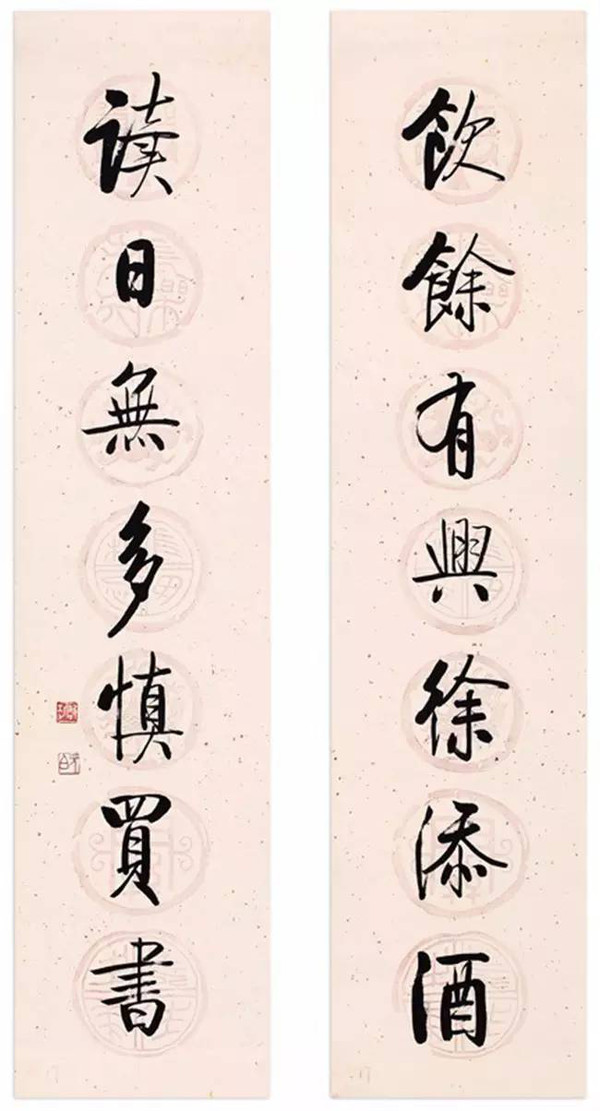 飲餘有興徐添酒
读日無多慎買書